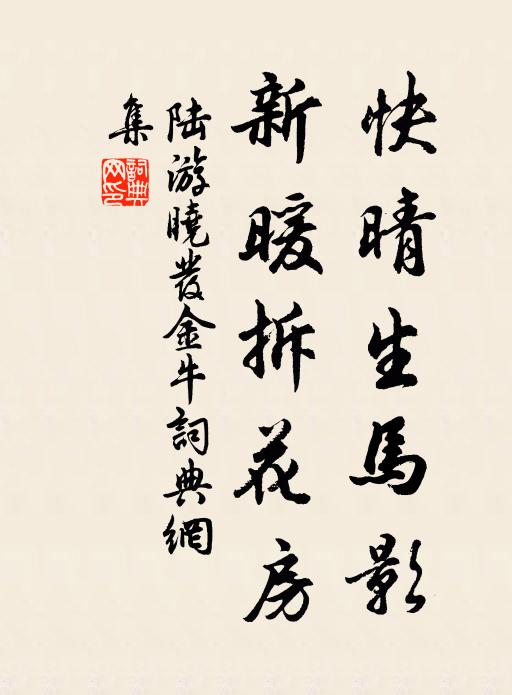 快晴生馬影
新暖拆花房
陆游曉發金牛詞典網
集
詞典
网印